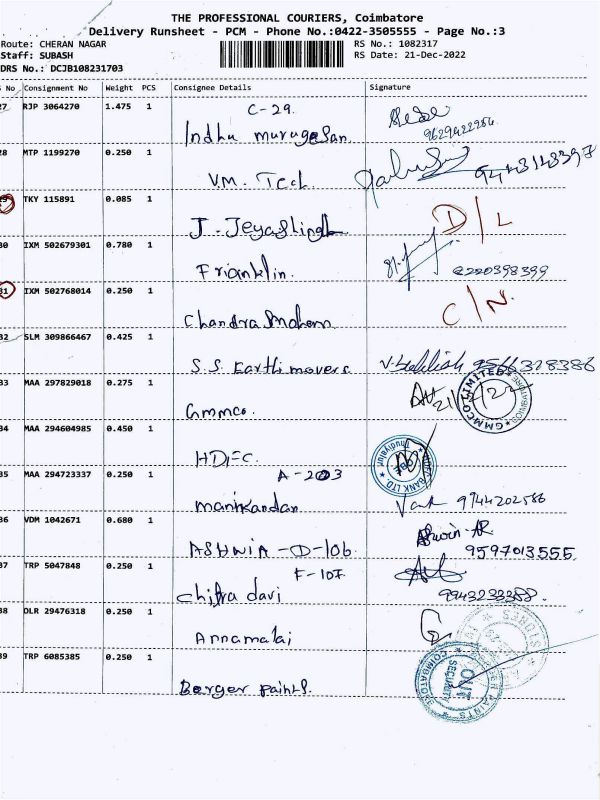 THE PROFESSIONAL COURIERS, Coimbatore
Delivery Runsheet - PCM - Phone No.:0422-3505555 - Page No.:3
Route: CHERAN NAGAR
RS No.: 1082317
Staff: SUBASH
RS Date: 21-Dec-2022
DRS No.: DCJB108231703
No Consignment No Weight PCS Consignee Details Signature
27 RJP 3064270 1.475 1 C-29.
Indhu murugesan. 9629422956
28 MTP 1199270 0.250 1
V.M. Tech
TKY 115891 0.085 1 D/L
J. Jeyaslingh
30 IXM 502679301 0.780 1
Frianklin. 8220398399
31 IXM 502768014 0.250 1 C/N.
Chandra mohem
32 SLM 309866467 0.425 1
S.S. Earthi movers 9566328386
33 MAA 297829018 0.275 1
Gmmco. GMMCO LIMITED COIMBATORE
34 MAA 294604985 0.450 1
HDFC. BANK LTD. Thudiyalur
35 MAA 294723337 0.250 1 A-203
manikandan 9944202586
36 VDM 1042671 0.680 1 Ashwin
ASHWIA-D-106 9597013555
37 TRP 5047848 0.250 1 F-107
chitra davi 9943233388.
38 DLR 29476318 0.250 1
Annamalai
39 TRP 6085385 0.250 1
Berger paints. COIMBATORE OUT SECURITY